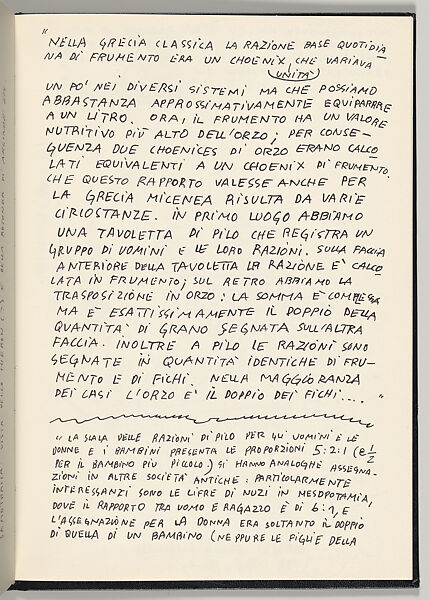 "
NELLA GRECIA CLASSICA LA RAZIONE BASE QUOTIDIA
NA DI FRUMENTO ERA UN CHOENIX, CHE VARIAVA
(UNITÀ)
UN PO' NEI DIVERSI SISTEMI MA CHE POSSIAMO
ABBASTANZA APPROSSIMATIVAMENTE EQUIPARARE
A UN LITRO. ORA, IL FRUMENTO HA UN VALORE
NUTRITIVO PIÙ ALTO DELL'ORZO; PER CONSE-
GUENZA DUE CHOENICES DI ORZO ERANO CALCO
LATI EQUIVALENTI A UN CHOENIX DI FRUMENTO.
CHE QUESTO RAPPORTO VALESSE ANCHE PER
LA GRECIA MICENEA RISULTA DA VARIE
CIRCOSTANZE. IN PRIMO LUOGO ABBIAMO
UNA TAVOLETTA DI PILO CHE REGISTRA UN
GRUPPO DI UOMINI E LE LORO RAZIONI. SULLA FACCIA
ANTERIORE DELLA TAVOLETTA LA RAZIONE E' CALCO
LATA IN FRUMENTO; SUL RETRO ABBIAMO LA
TRASPOSIZIONE IN ORZO: LA SOMMA E' COMPLESSA
MA E' ESATTISSIMAMENTE IL DOPPIO DELLA
QUANTITA' DI GRANO SEGNATA SULL'ALTRA
FACCIA. INOLTRE A PILO LE RAZIONI SONO
SEGNATE IN QUANTITA' IDENTICHE DI FRU-
MENTO E DI FICHI. NELLA MAGGIORANZA
DEI CASI L'ORZO E' IL DOPPIO DEI FICHI.... "
"LA SCALA DELLE RAZIONI DI PILO PER GLI UOMINI E LE
DONNE E I BAMBINI PRESENTA LE PROPORZIONI 5:2:1 (e 1/2
PER IL BAMBINO PIÙ PICCOLO.) SI HANNO ANALOGHE ASSEGNA-
ZIONI IN ALTRE SOCIETÀ ANTICHE: PARTICOLARMENTE
INTERESSANTI SONO LE CIFRE DI NUZI IN MESOPOTAMIA,
DOVE IL RAPPORTO TRA UOMO E RAGAZZO È DI 6:1, E
L'ASSEGNAZIONE PER LA DONNA ERA SOLTANTO IL DOPPIO
DI QUELLA DI UN BAMBINO (NEPPURE LE FIGLIE DELLA